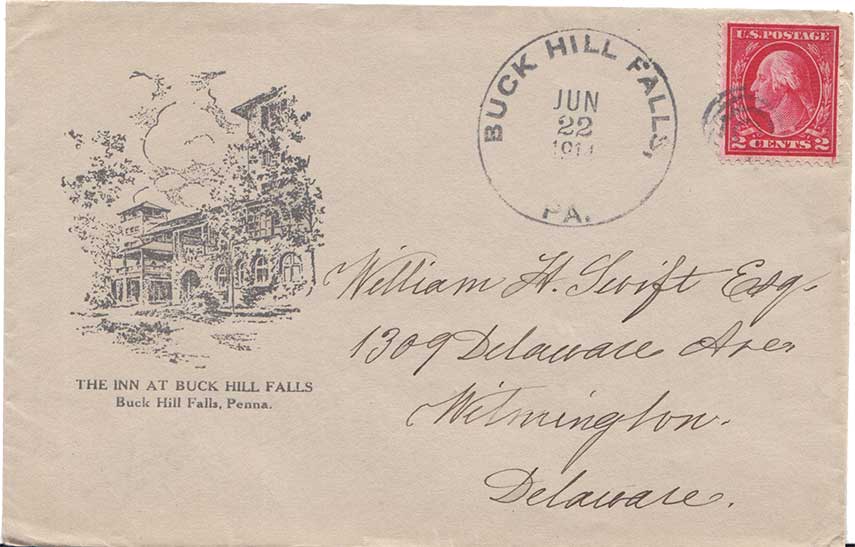 BUCK HILL FALLS,
JUN
22
PA.
U.S. POSTAGE
2 CENTS 2
THE INN AT BUCK HILL FALLS
Buck Hill Falls, Penna.
William H. Swift Esq.
1309 Delaware Ave
Wilmington.
Delaware.